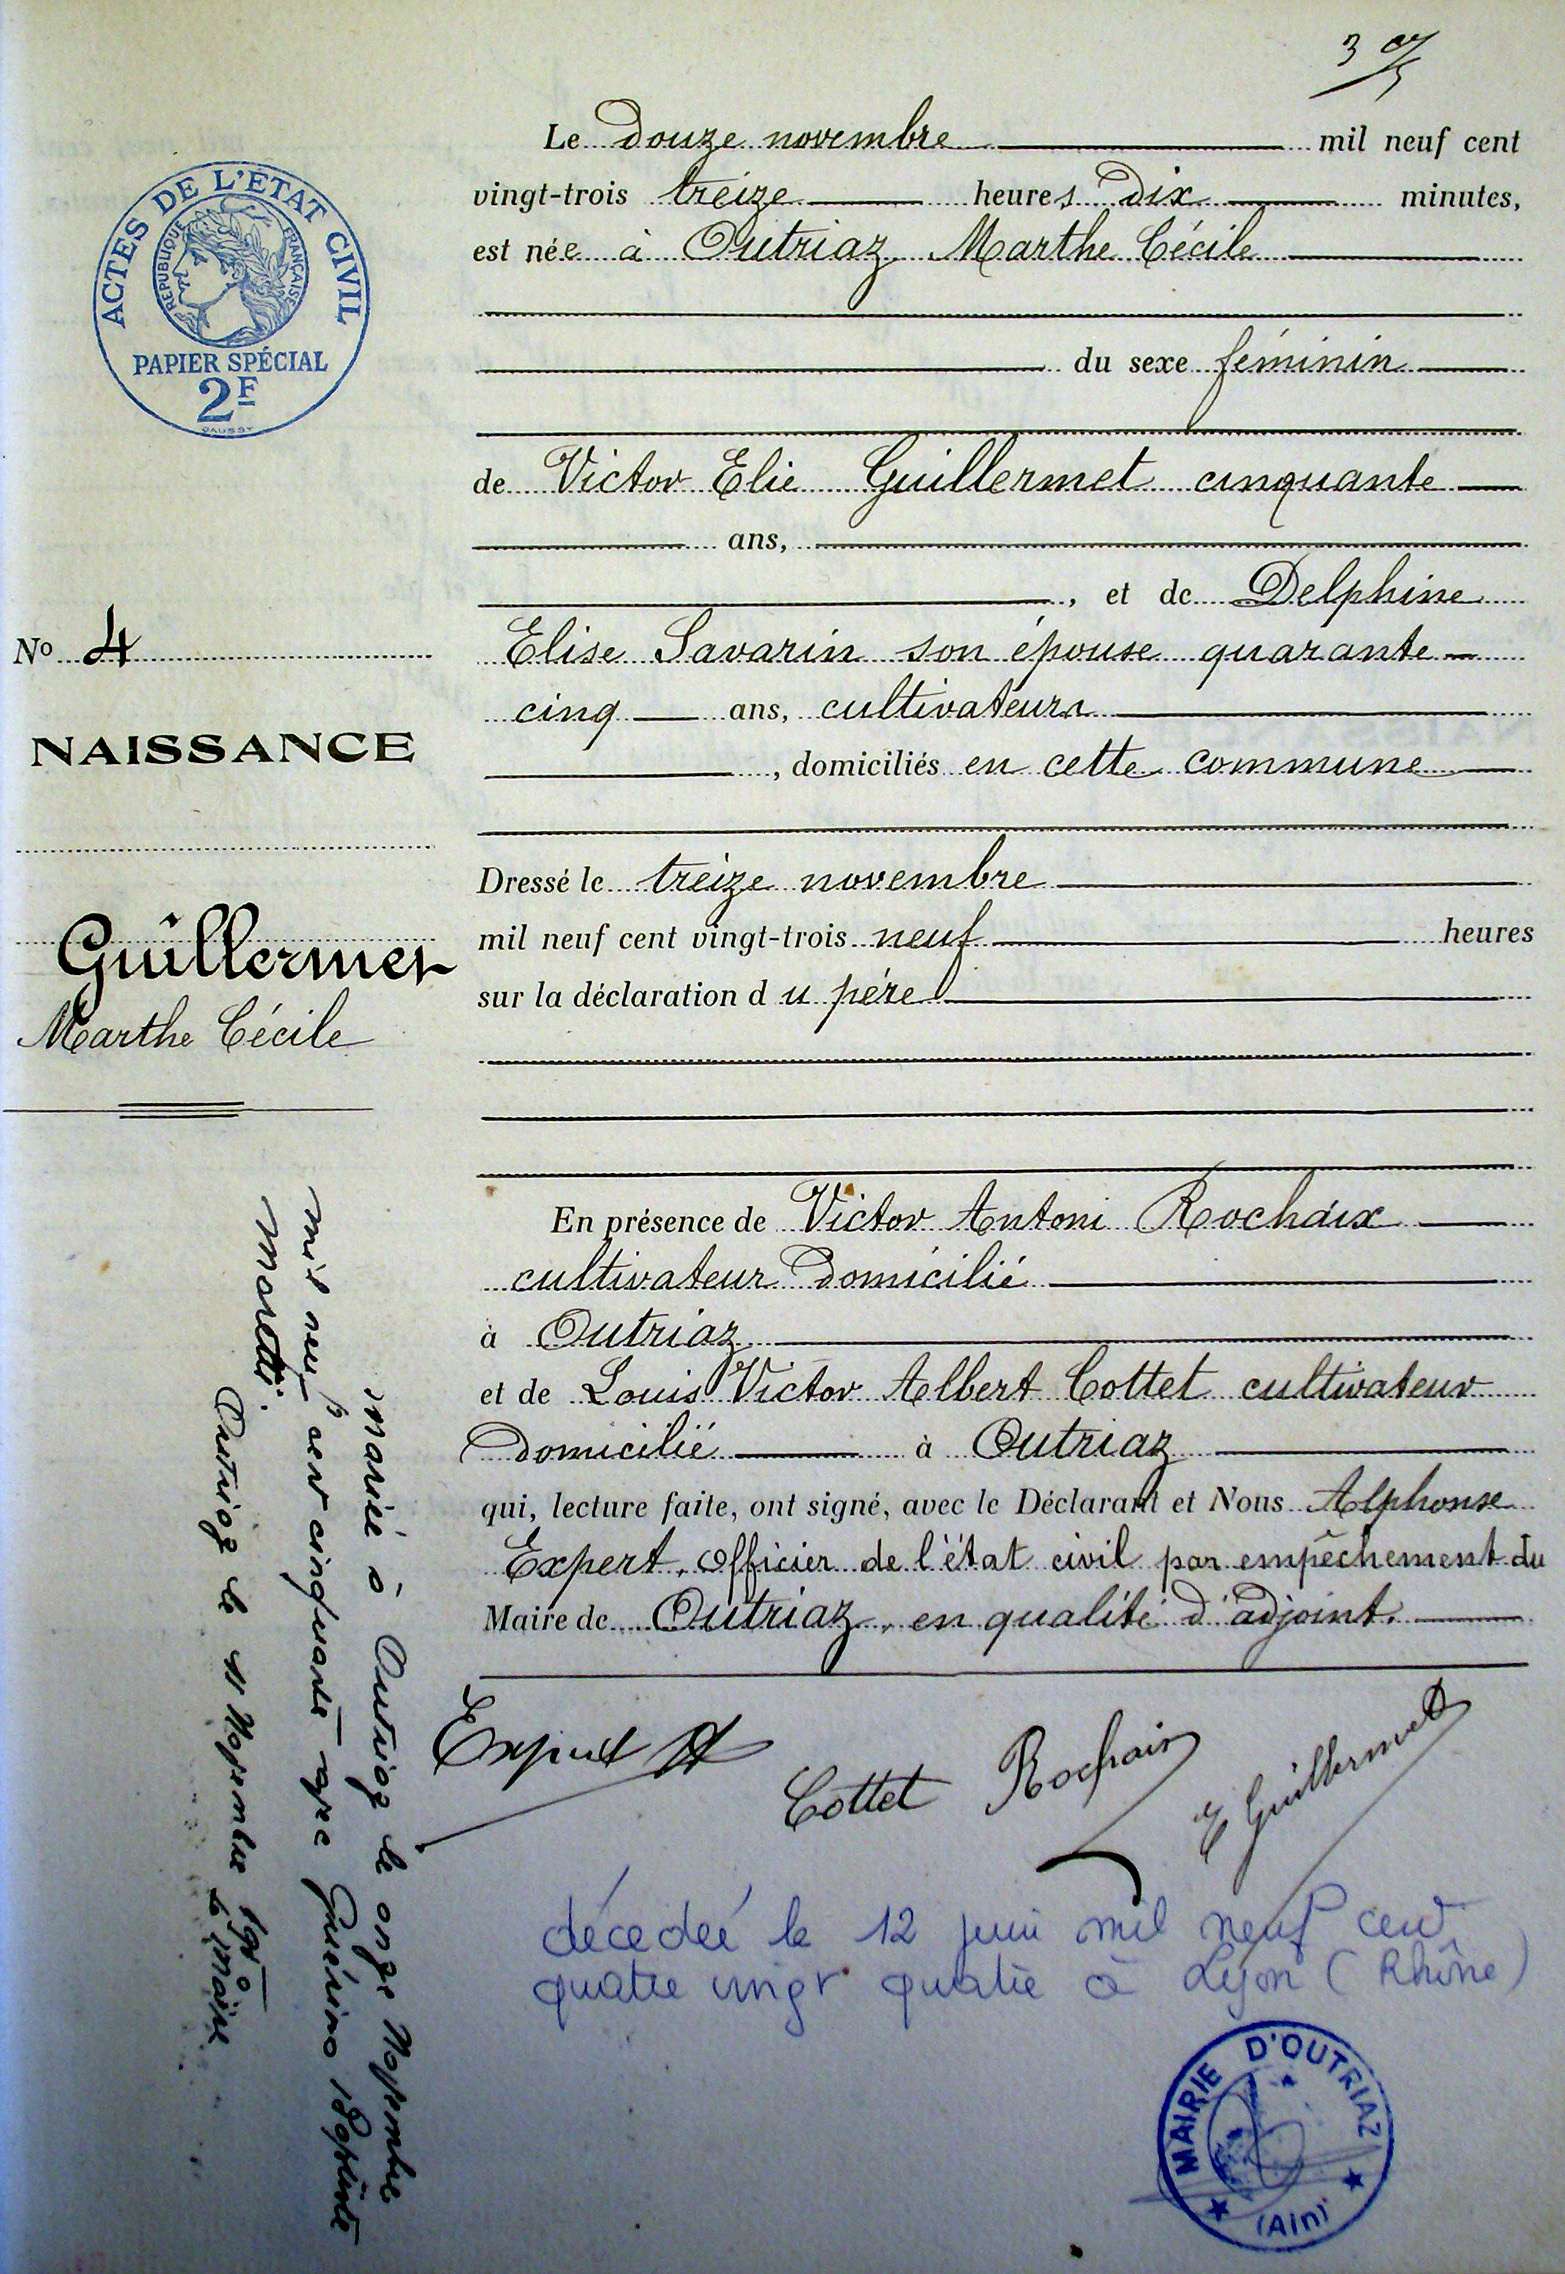 Le douze novembre mil neuf cent
vingt-trois treize heures dix minutes,
est née à Outriaz Marthe Cécile
du sexe féminin
de Victor Elie Guillermet cinquante
ans,
, et de Delphine
Elise Savarin son épouse quarante
cinq ans, cultivateurs
, domiciliés en cette commune
Dressé le treize novembre
mil neuf cent vingt-trois neuf heures
sur la déclaration du père
En présence de Victor Antoni Rochaix
cultivateur domicilié
à Outriaz
et de Louis Victor Albert Cottet cultivateur
domicilié à Outriaz
qui, lecture faite, ont signé, avec le Déclarant et Nous Alphonse
Expert, officier de l'état civil par empêchement du
Maire de Outriaz, en qualité d'adjoint.
Expert A
Cottet
Rochaix
E Guillermet
décedeé le 12 juin mil neuf cent
quatre vingt quatre à Lyon (Rhône)
MAIRIE D'OUTRIAZ
(Ain)
ACTES DE L'ÉTAT CIVIL
RÉPUBLIQUE FRANÇAISE
PAPIER SPÉCIAL
2F
DAUSSY
No 4
NAISSANCE
Guillermet
Marthe Cécile
Mariée à Outriaz le onze Novembre
mil neuf cent cinquante avec Guérino Baptiste
Moretti.
Outriaz le 11 Novembre 1950
Le Maire